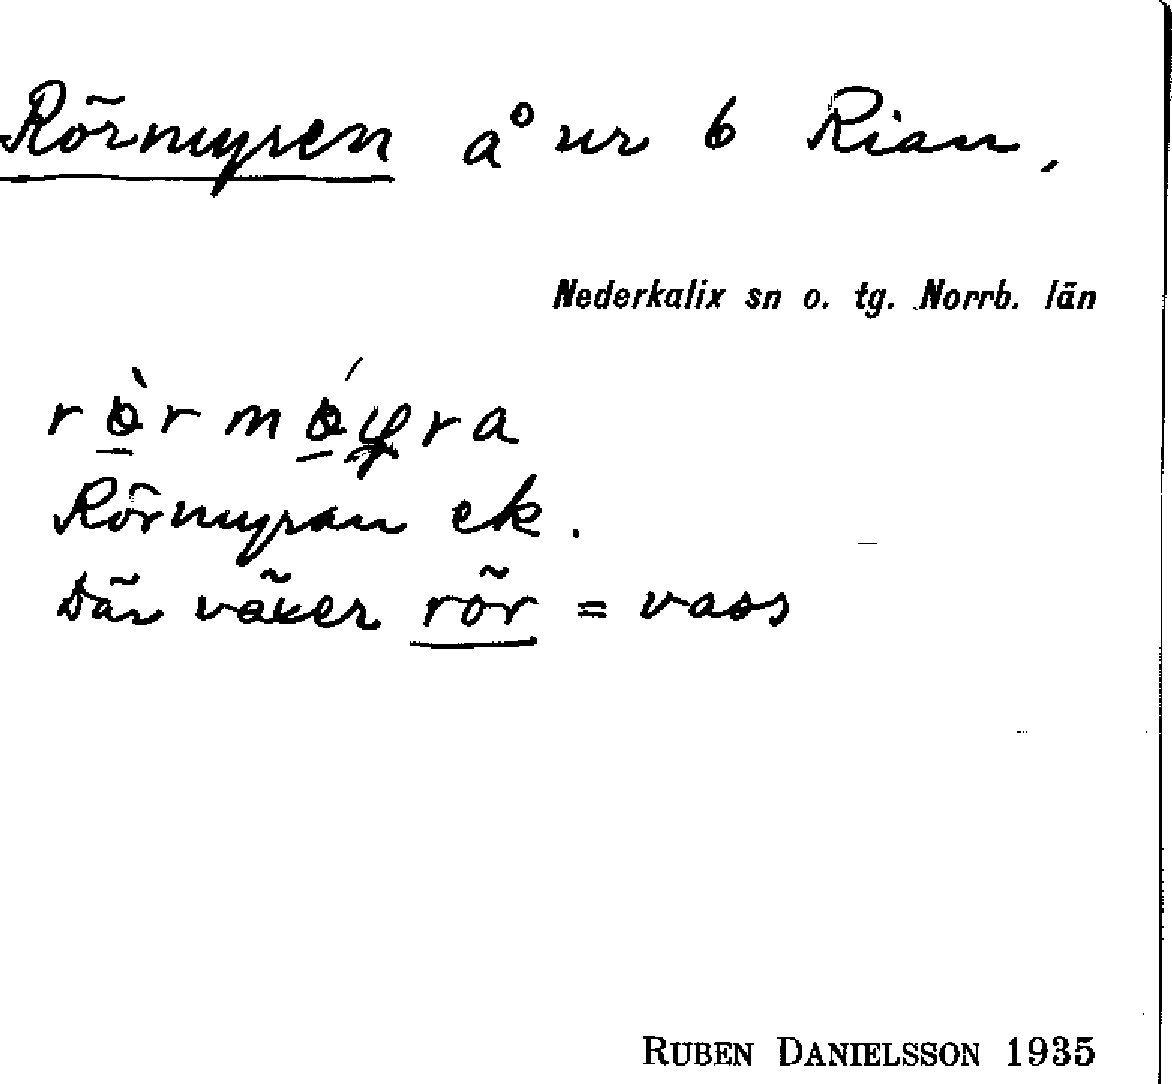 Rörmyren å nr 6 Rian,
Nederkalix sn o. tg. Norrb. län
Rörmyran ek.
Där växer rör = vass
RUBEN DANIELSSON 1935